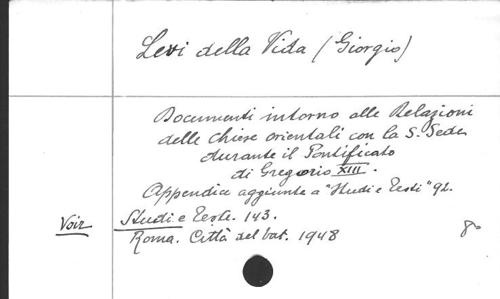 Levi della Vida (Giorgio)
Documenti intorno alle Relazioni
delle chiese orientali con la S. Sede
durante il Pontificato
di Gregorio XIII.
Appendice aggiunta a "Studi e Testi" 92.
Voir Studi e Teste. 143.
Roma. Città del Vat. 1948 8º